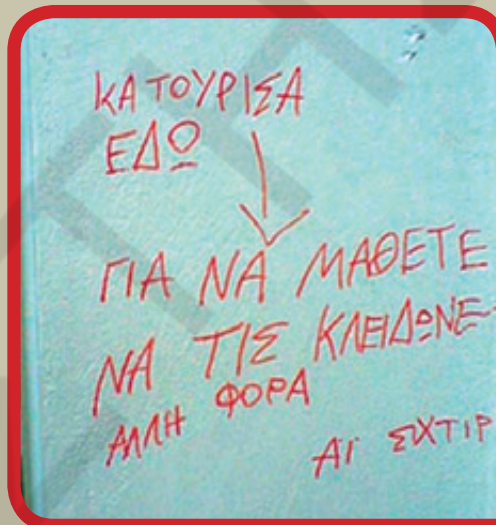 ΚΑΤΟΥΡΙΣΑ
ΕΔΩ
ΓΙΑ ΝΑ ΜΑΘΕΤΕ
ΝΑ ΤΙΣ ΚΛΕΙΔΩΝΕ
ΑΛΛΗ ΦΟΡΑ
ΑΪ ΣΙΧΤΙΡ